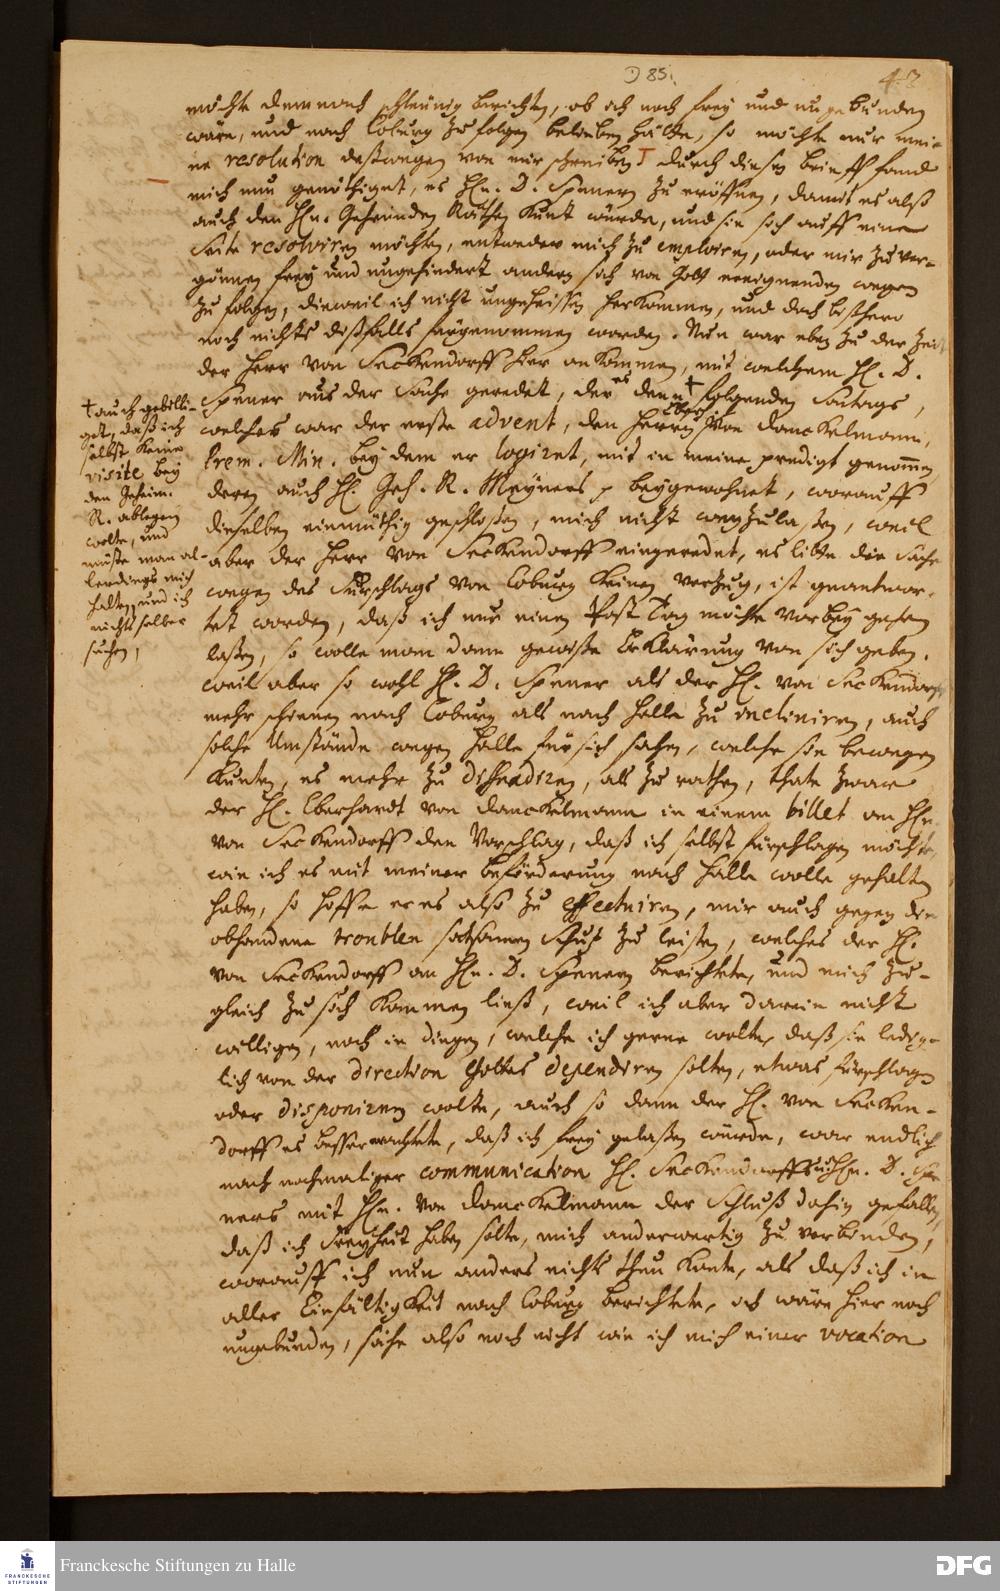 D 85.
43
möchte demnach schleunig berichten, ob ich noch frey und ungebunden
wäre, und nach Coburg zu folgen belieben hätte, so möchte nur mei-
ne resolution deßwegen von mir schreiben. Durch diesen brieff fand
mich nun genöthiget, es Hn. D. Spenern zu eröffnen, damit es alß
auch den Hn. Geheimden Räthen kunt würde, und sie sich auff eine
Seite resolviren möchten, entweder mich zu emploiren, oder mir zu ver-
gönnen frey und ungehindert andern sich von Gott ereignenden wegen
zu folgen, dieweil ich nicht ungeheissen herkommen, und doch bißhero
noch nichts dißfalls fürgenommen worden. Nun war eben zu der Zeit
der Herr von Seckendorff hier ankommen, mit welchem H. D.
Spener aus der Sache geredet, der es denn † folgenden Sontags,
welches war der erste advent, den Herrn von Danckelmann,
Prem. Min. bey dem er logiret, mit in meine predigt genom̄en,
deren auch H. Geh. R. Meyners p beygewohnet, worauff
dieselben einmüthig geschloßen, mich nicht wegzulaßen, weil
aber der Herr von Seckendorff eingeredet, es litte die Sache
wegen des Fürschlags von Coburg keinen verzug, ist geantwor-
tet worden, daß ich nur einen Post Tag möchte vorbey gehen
laßen, so wolle man dann gewiße Erklärung von sich geben.
weil aber so wohl H. D. Spener als der H. von Seckendorff
mehr schienen nach Coburg als nach Halle zu incliniren, auch
solche Umstände wegen Halle für sich sahen, welche sie bewegen
kunten, es mehr zu dissuadiren, als zu rathen, thate zwar
der H. Eberhardt von Danckelmann in einem billet an Hn.
von Seckendorff den Vorschlag, daß ich selbst fürschlagen möchte,
wie ich es mit meiner beförderung nach Halle wolle gehalten
haben, so hoffe er es also zu effectuiren, mir auch gegen die
obhandene troublen sattsamen Schutz zu leisten, welches der H.
von Seckendorff an Hn. D. Spenern berichtete, und mich zu-
gleich zu sich kommen ließ, weil ich aber darein nicht
willigen, noch in dingen, welche ich gerne wolte, daß sie ledig-
lich von der direction Gottes dependiren solten, etwas fürschlagen
oder disponiren wolte, auch so dann der H. von Secken-
dorff es besser erachtete, daß ich frey gelaßen würde, war endlich
nach nochmaliger communication H. Seckendorffs und Hn. D. Spe-
ners mit Hn. von Danckelmann der Schluß dahin gefallen,
daß ich Freyheit haben solte, mich anderwertig zu verbinden,
worauff ich nun anders nichts thun konte, als daß ich in
aller Einfältigkeit nach Coburg berichtete, ich wäre hier noch
ungebunden, sähe also noch nicht wie ich mich einer vocation
† auch gebilli-
get, daß ich
selbst keine
visite bey
den Geheim.
R. ablegen
wolte, und
müste man al-
lerdings mich
halten, und ich
nichts selber
suchen,
FRANCKESCHE
STIFTUNGEN
Franckesche Stiftungen zu Halle
DFG